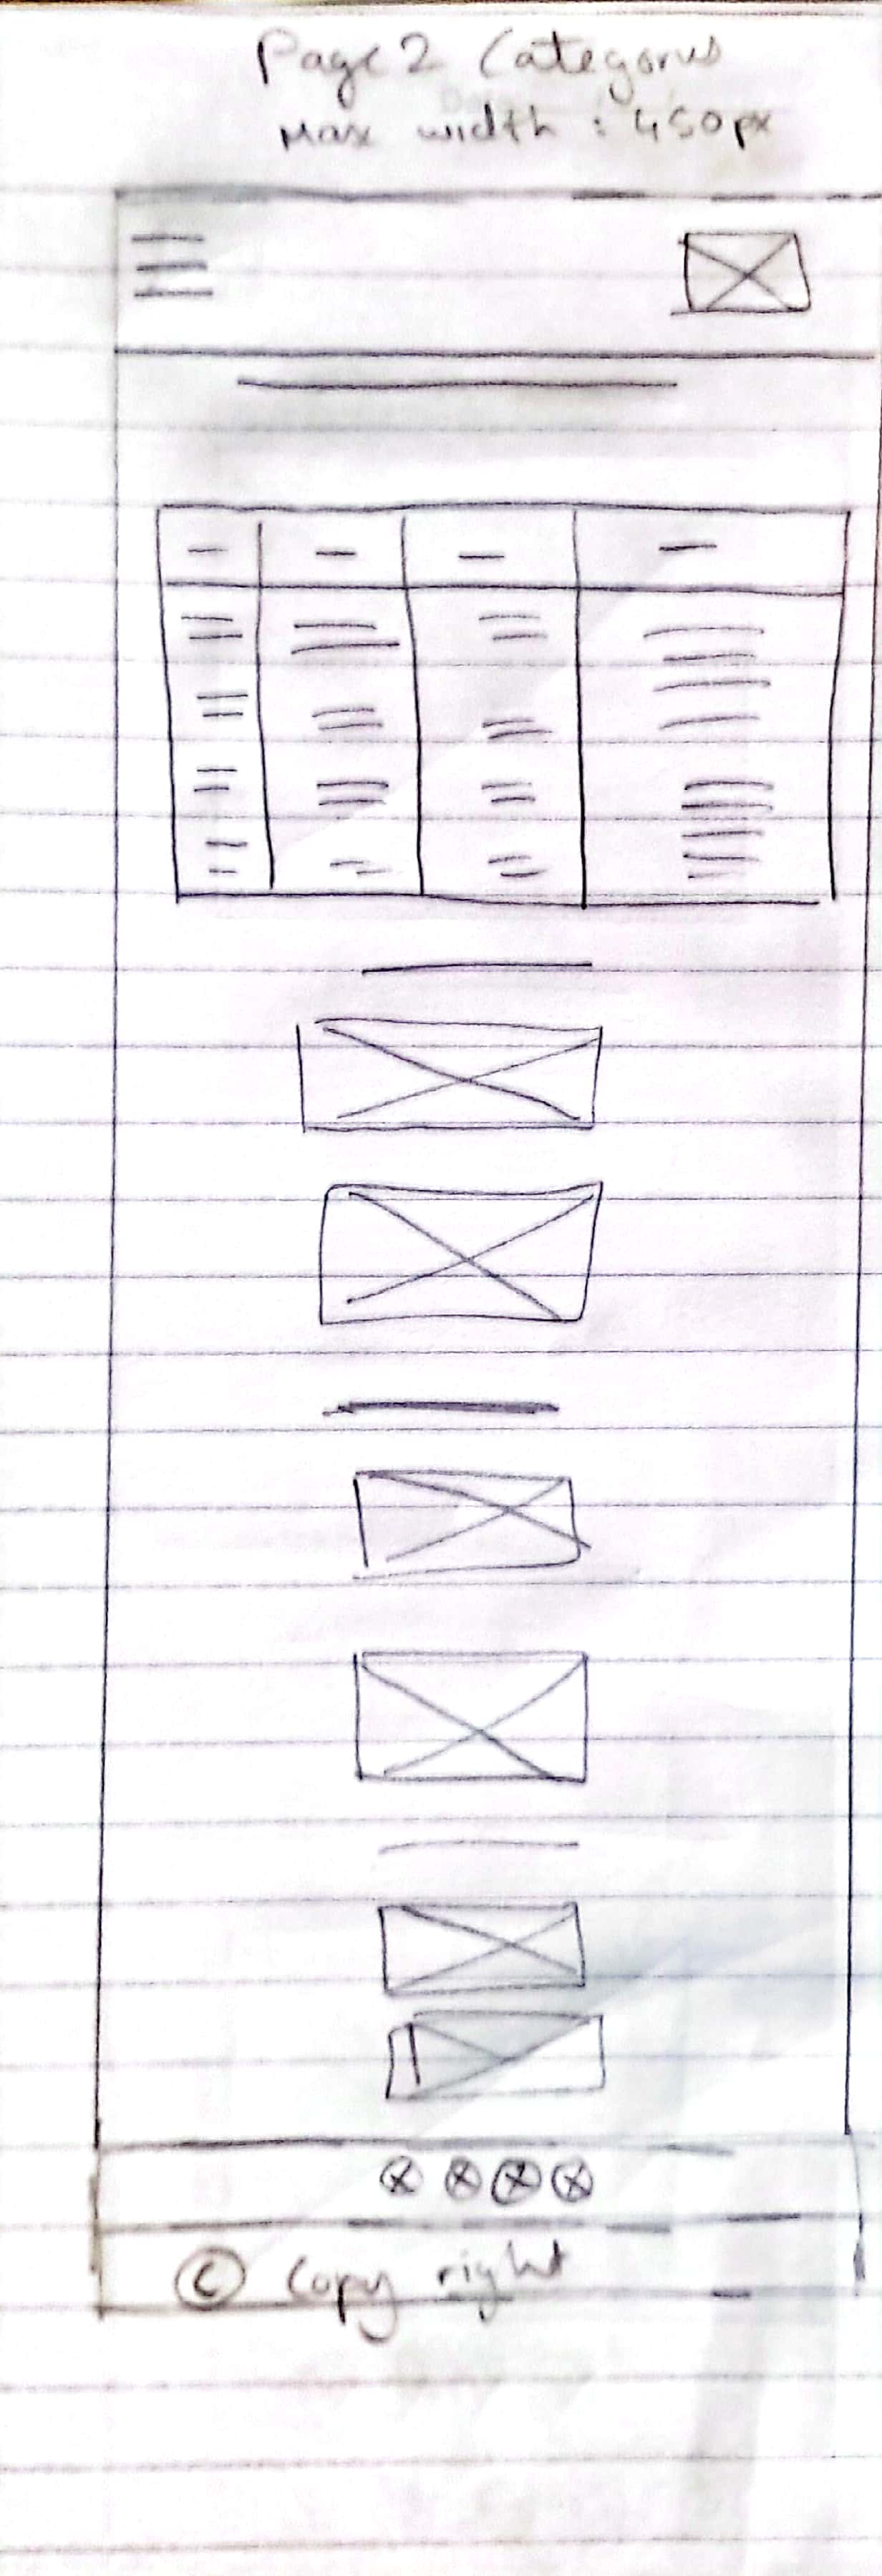 Page 2 Categories
Max width : 450px
© Copy right